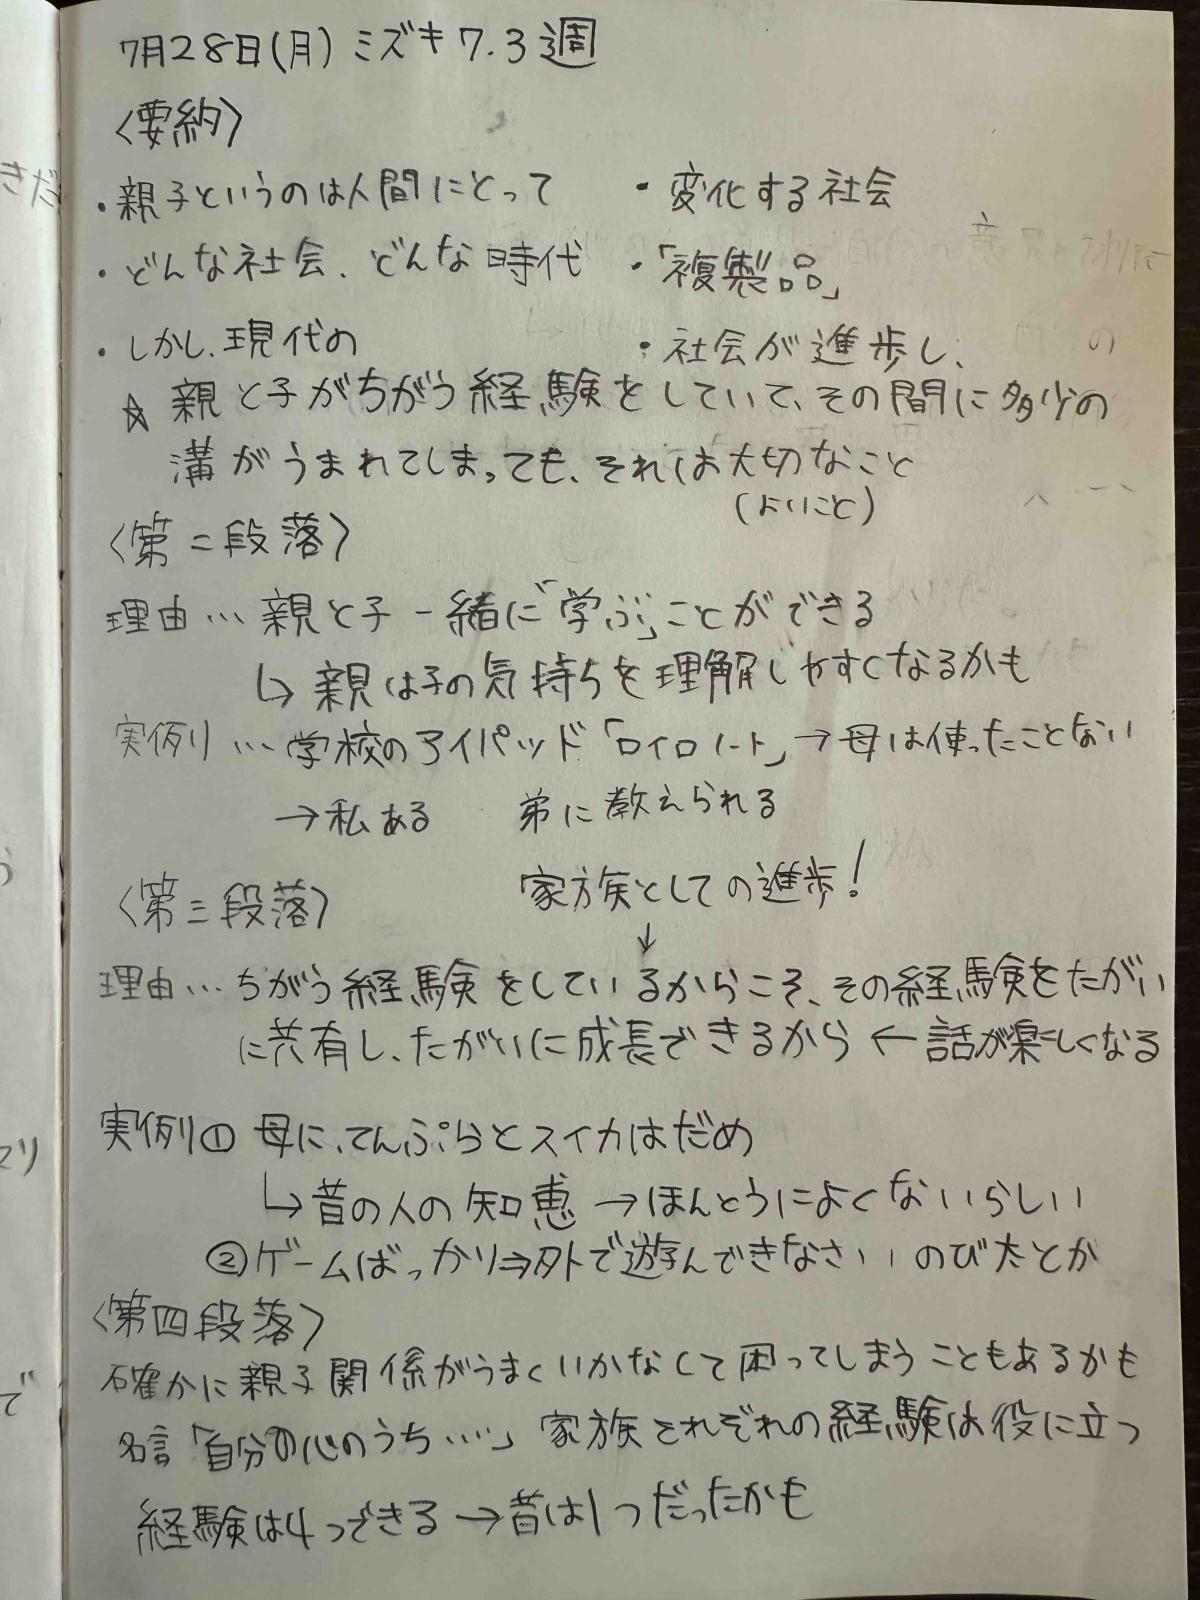 7月28日(月) ミズキ 7.3週
〈要約〉
・親子というのは人間にとって
・どんな社会、どんな時代
・しかし、現代の
・変化する社会
・「複製品」
・社会が進歩し、
☆ 親と子がちがう経験をしていて、その間に多少の
溝がうまれてしまっても、それは大切なこと
(よいこと)
〈第二段落〉
理由…親と子一緒に「学ぶ」ことができる
↳親は子の気持ちを理解しやすくなるかも
実例…学校のアイパッド「ロイロノート」→母は使ったことない
→私ある 弟に教えられる
家族としての進歩!
↓
〈第三段落〉
理由…ちがう経験をしているからこそ、その経験をたがい
に共有し、たがいに成長できるから ← 話が楽しくなる
実例① 母に、てんぷらとスイカはだめ
↳昔の人の知恵→ほんとうによくないらしい
②ゲームばっかり⇒外で遊んできなさい のびたとか
〈第四段落〉
確かに親子関係がうまくいかなくて困ってしまうこともあるかも
名言「自分の心のうち…」 家族それぞれの経験は役に立つ
経験は4つできる→昔は1つだったかも
きだ
マリ
で